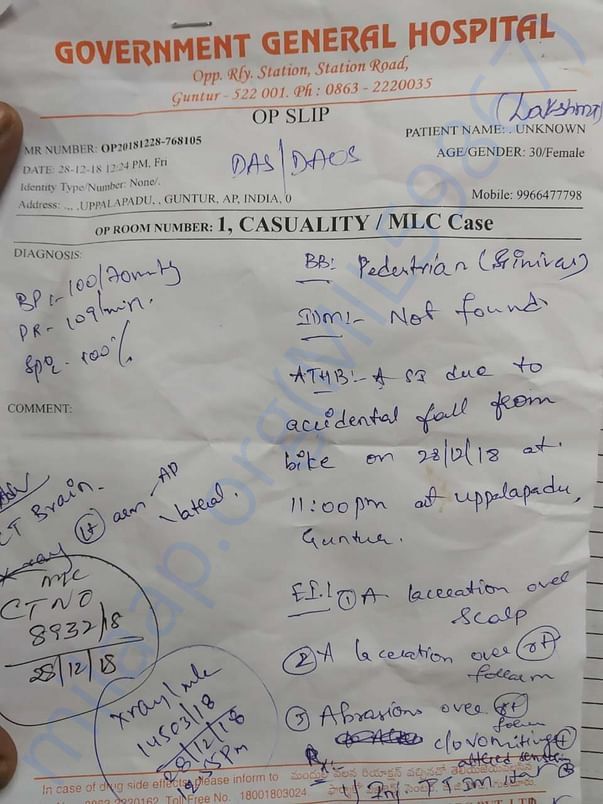 GOVERNMENT GENERAL HOSPITAL
Opp. Rly. Station, Station Road,
Guntur - 522 001. Ph : 0863 - 2220035
OP SLIP
(Lakshmi)
MR NUMBER: OP20181228-768105
PATIENT NAME: . UNKNOWN
DATE: 28-12-18 12:24 PM, Fri
AGE/GENDER: 30/Female
Identity Type/Number: None/.
Address: ., ., .UPPALAPADU, , GUNTUR, AP, INDIA, 0
Mobile: 9966477798
OP ROOM NUMBER: 1, CASUALITY / MLC Case
DIAGNOSIS:
BP:- 100/70mmHg
PR:- 109/min.
SpO2 - 100%
BB:- Pedestrian (Srinivas)
IDM:- Not found
ATHB:- A SI due to
accidental fall from
bike on 28/12/18 at
11:00pm at uppalapadu,
Guntur.
COMMENT:
CT Brain -
X-ray Lt arm - AP
lateral.
MLC
CT NO
8932/18
28/12/18
xray/mlc
14503/18
28/12/18
E.I:- (1) A laceration over
scalp
(2) A laceration over rt
(3) Abrasions over rt
c/o vomiting +
altered
Rx:-
In case of drug side effects please inform to
Toll Free No. 18001803024.